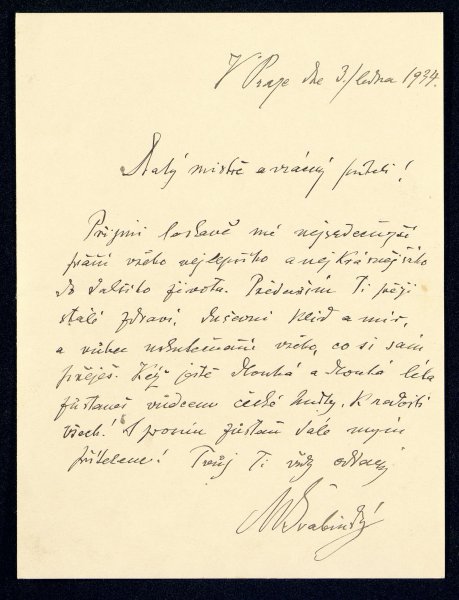 V Praze dne 3./ledna 1934.
Zlatý mistře a vzácný příteli!
Přijmi laskavě mé nejsrdečnější
přání všeho nejlepšího a nejkrásnějšího
do dalšího života. Především Ti přeji
stálé zdraví, duševní klid a mír,
a vůbec uskutečnění všeho, co si sám
přeješ. Kéž ještě dlouhá a dlouhá léta
zůstaneš vůdcem české hudby, k radosti
všech! A prosím zůstaň dále mým
přítelem! Tvůj Ti vždy oddaný
MŠvabinský